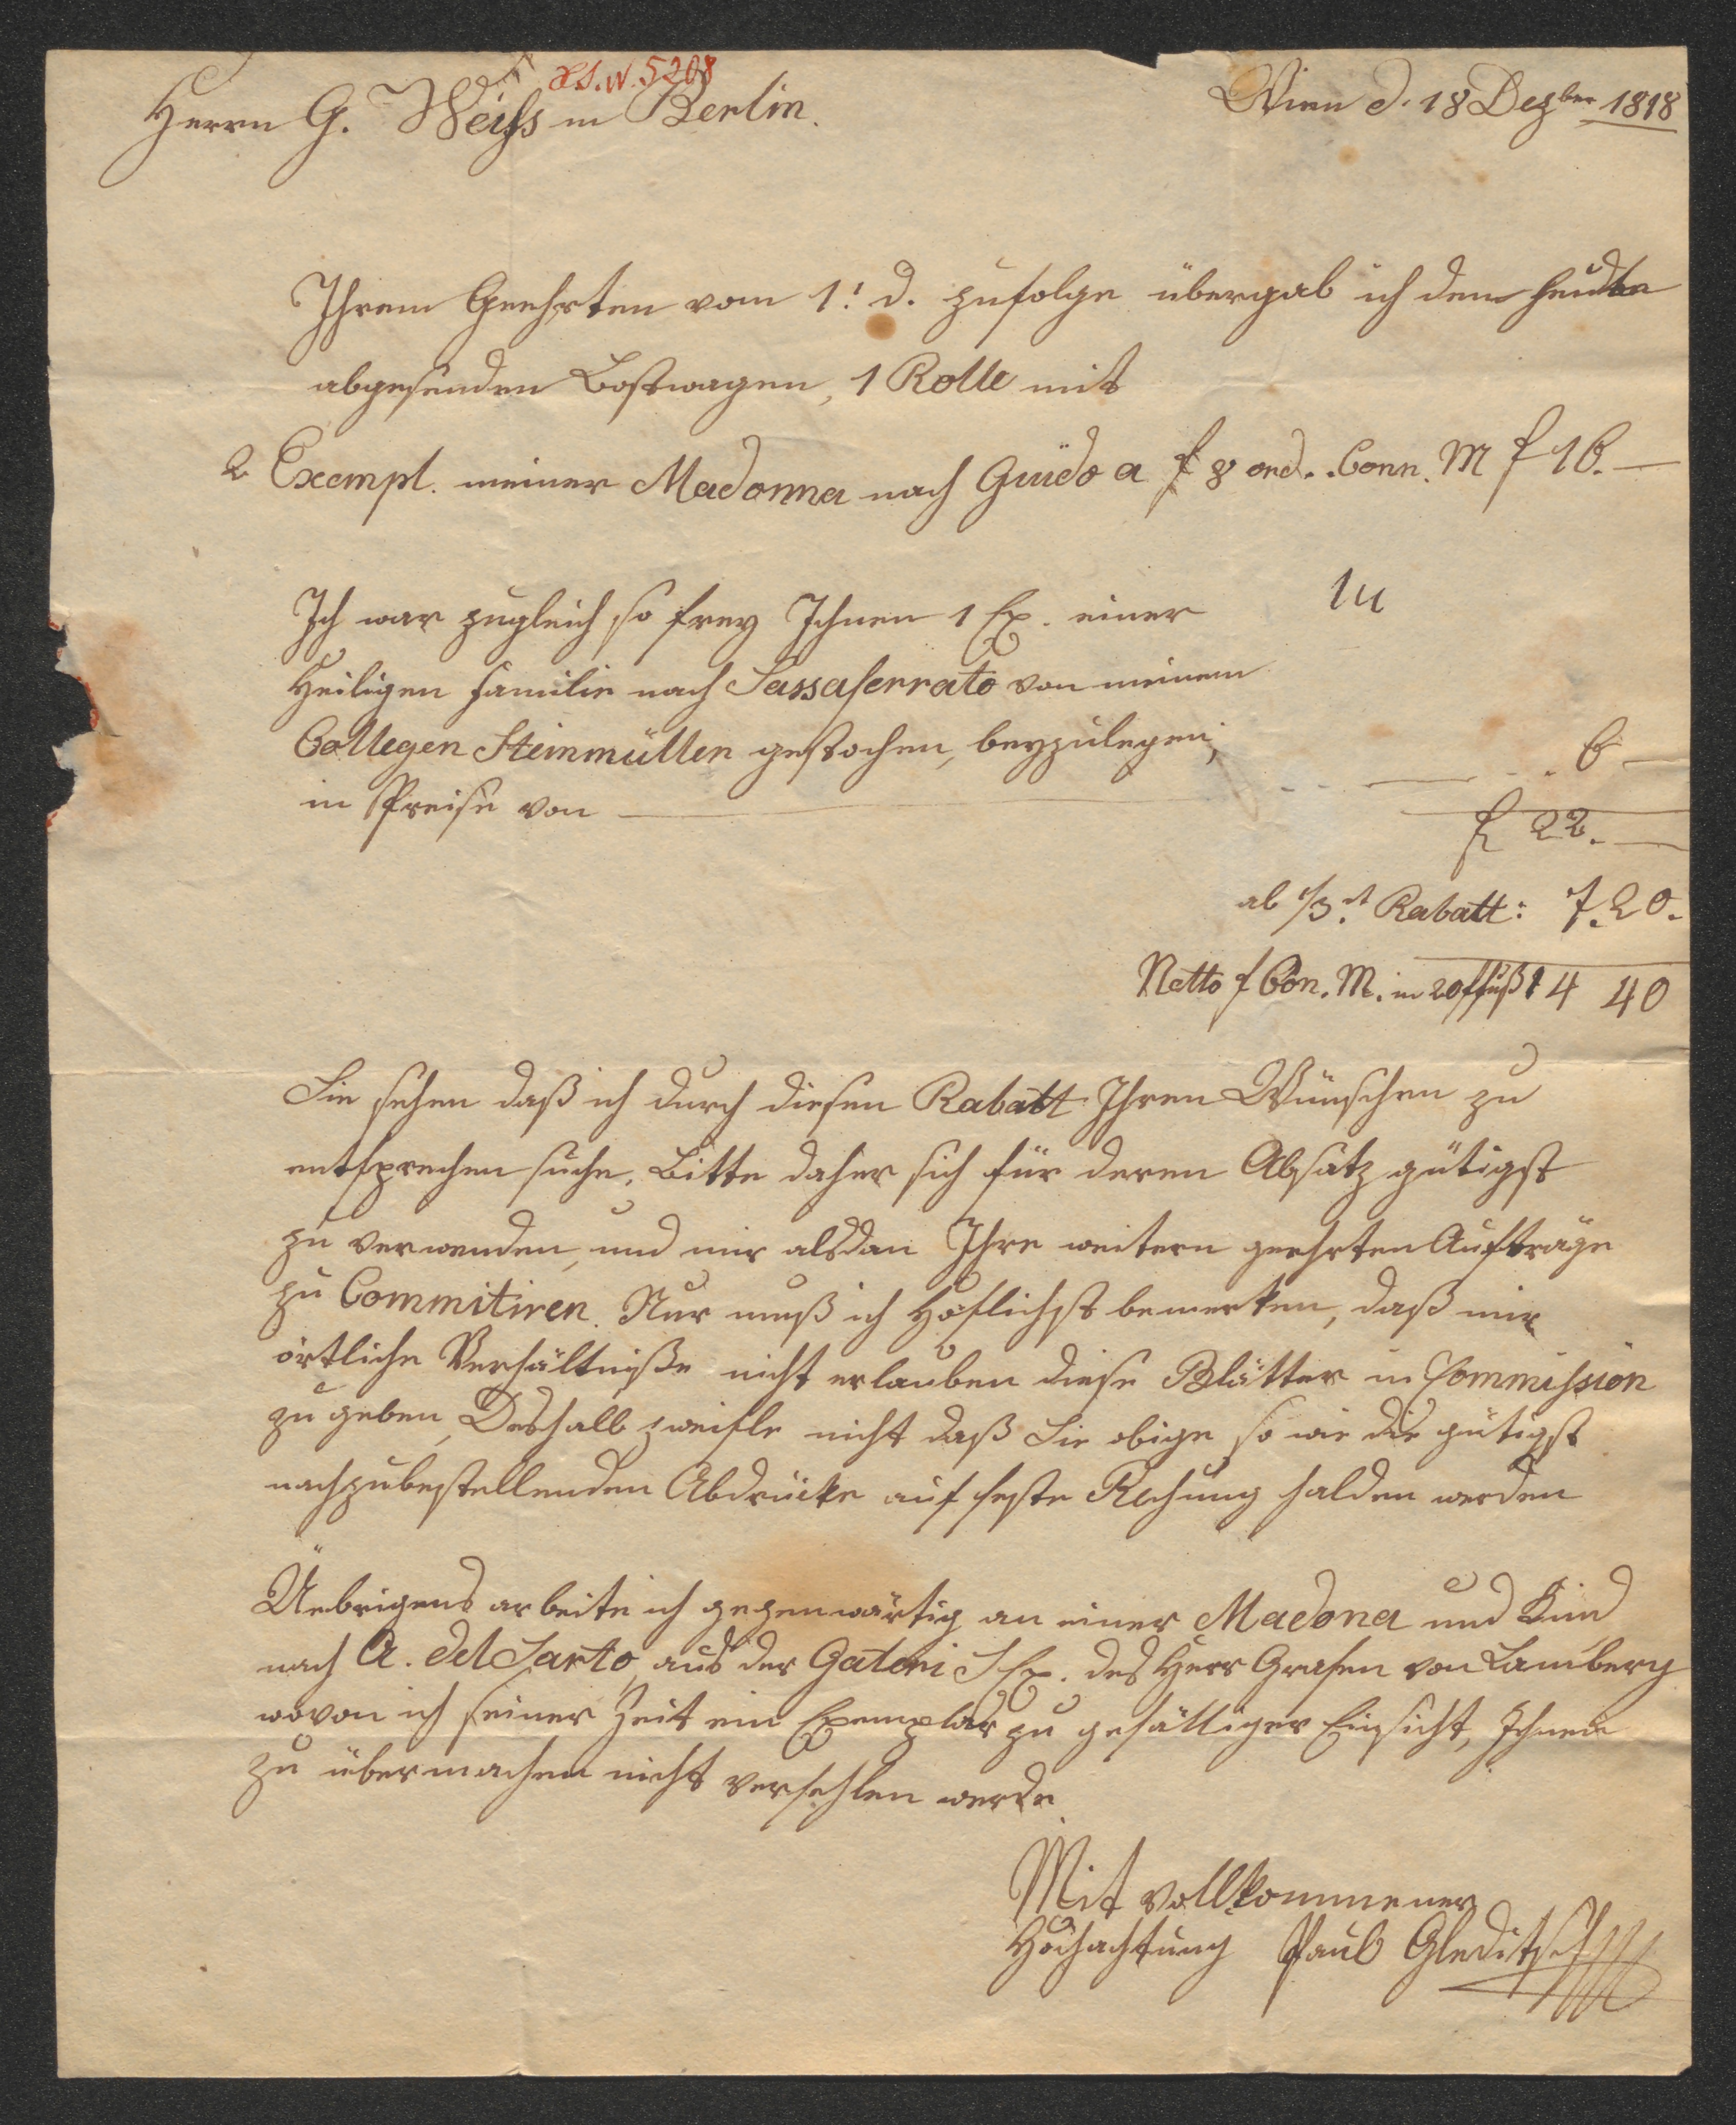 HS.N.5208
Herrn G. Weiss in Berlin.
Wien d. 18 Dezber 1818
Ihrem Geehrten vom 1t d. zufolge übergab ich dem heudte
abgehenden Postwagen, 1 Rolle mit
2 Exempl. meiner Madonna nach Guido a f 8 ord. Conv. M f 16.—
Ich war zugleich so frey Ihnen 1 Ex. einer
Heiligen Familie nach Sassaferrato von meinem
Collegen Steinmüller gestochen, beyzulegen,
in Preise von — 6 —
f 22.—
ab 1/3t Rabatt: 7.20.
Netto f Con. M. in 20 f fuß 14 40
Sie sehen daß ich durch diesen Rabatt Ihren Wünschen zu
entsprechen suche. Bitte daher sich für deren Absatz gütigst
zu verwenden, und mir alsdan Ihre weitern geehrten Aufträge
zu Commitiren. Nur muß ich Höflichst bemerken, daß mir
örtliche Verhältniße nicht erlauben diese Blätter in Commission
zu geben, Deshalb zweifle nicht daß Sie obige so wie die gütigst
nachzubestellenden Abdrücke auf feste Rechung halden werden
Uebrigens arbeite ich gegenwärtig an einer Madona und Kind
nach A. del Sarto, aus der Galleri S Ex. des Herr Grafen von Lamberg
wovon ich seiner Zeit ein Exemplar zu gefälliger Einsicht, Ihnen
zu übermachen nicht verfehlen werde.
Mit vollkommener
Hochachtung Paul Gleditsch